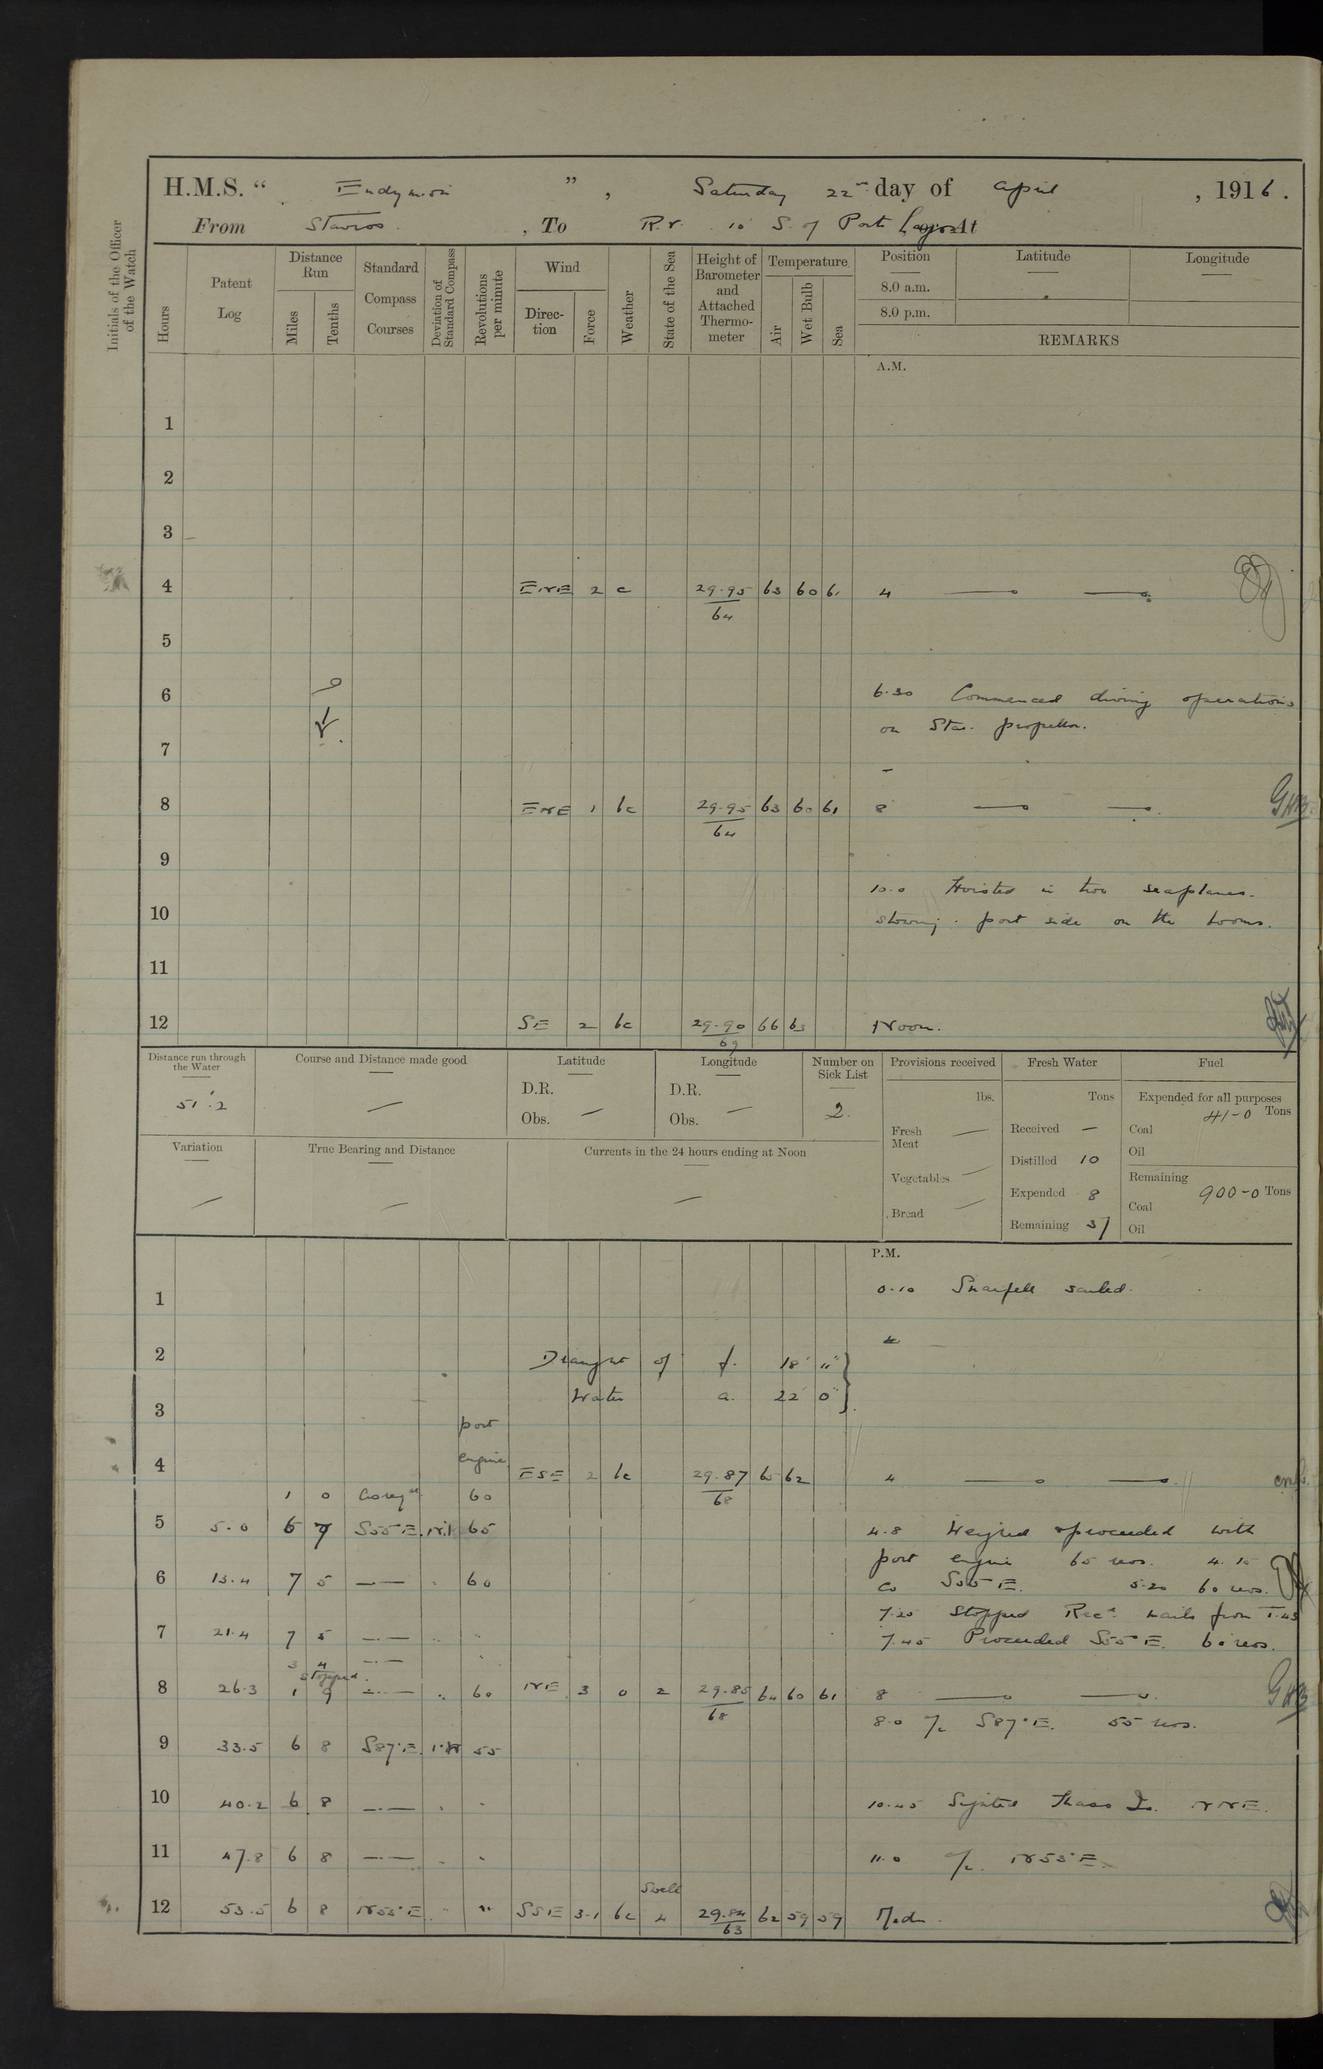 H.M.S. " Endymion " , Saturday 22nd day of April , 1916 .
From Stavros , To R.V. 10' S. of Port Lagos Lt
Initials of the Officer of the Watch
Hours
Patent Log
Distance Run
Miles
Tenths
Standard Compass Courses
Deviation of Standard Compass
Revolutions per minute
Wind
Direction
Force
Weather
State of the Sea
Height of Barometer and Attached Thermometer
Temperature
Air
Wet Bulb
Sea
Position Latitude Longitude
8.0 a.m.
8.0 p.m.
REMARKS
A.M.
1
2
3
4 ENE 2 c 29.95 63 60 61 4
64
5
6 6.30 Commenced diving operations
on Star. propellor.
7
8 ENE 1 bc 29.95 63 60 61 8 GHB
64
9
10.0 Hoisted in two seaplanes.
10 stowing port side on the booms.
11
12 SE 2 bc 29.90 66 63 Noon.
69
Distance run through the Water
51'.2
Course and Distance made good
Latitude
D.R.
Obs. —
Longitude
D.R.
Obs. —
Number on Sick List
2
Provisions received
lbs.
Fresh Meat —
Vegetables —
Bread —
Fresh Water
Tons
Received —
Distilled 10
Expended 8
Remaining 37
Fuel
Expended for all purposes
41-0 Tons
Coal
Oil
Remaining
900-0 Tons
Coal
Oil
Variation
True Bearing and Distance
Currents in the 24 hours ending at Noon
P.M.
1 0.10 Snaefell sailed.
2 Draught of f. 18' 11"
Water a. 22' 0"
3
port
4 engine ESE 2 bc 29.87 65 62 4
68
1 0 60
5 5.0 6 7 S55°E Nil 65 4.8 Weighed & proceeded with
port engine 65 revs. 4.15
6 13.4 7 5 60 Co S55°E. 5.20 60 revs.
7.20 Stopped Recd. mails from T.43
7 21.4 7 5 7.45 Proceeded S55°E. 60 revs.
3 4
Stopped
8 26.3 1 9 60 NE 3 o 2 29.85 64 60 61 8 GHB
68
8.0 a/c S87°E. 55 revs.
9 33.5 6 8 S87°E 55
10 40.2 6 8 10.45 Sighted Thaso Id. NNE.
11 47.8 6 8 11.0 a/c. N55°E.
Swell
12 53.5 6 8 N55°E SSE 3.1 bc 4 29.84 62 59 59 Mdn.
63